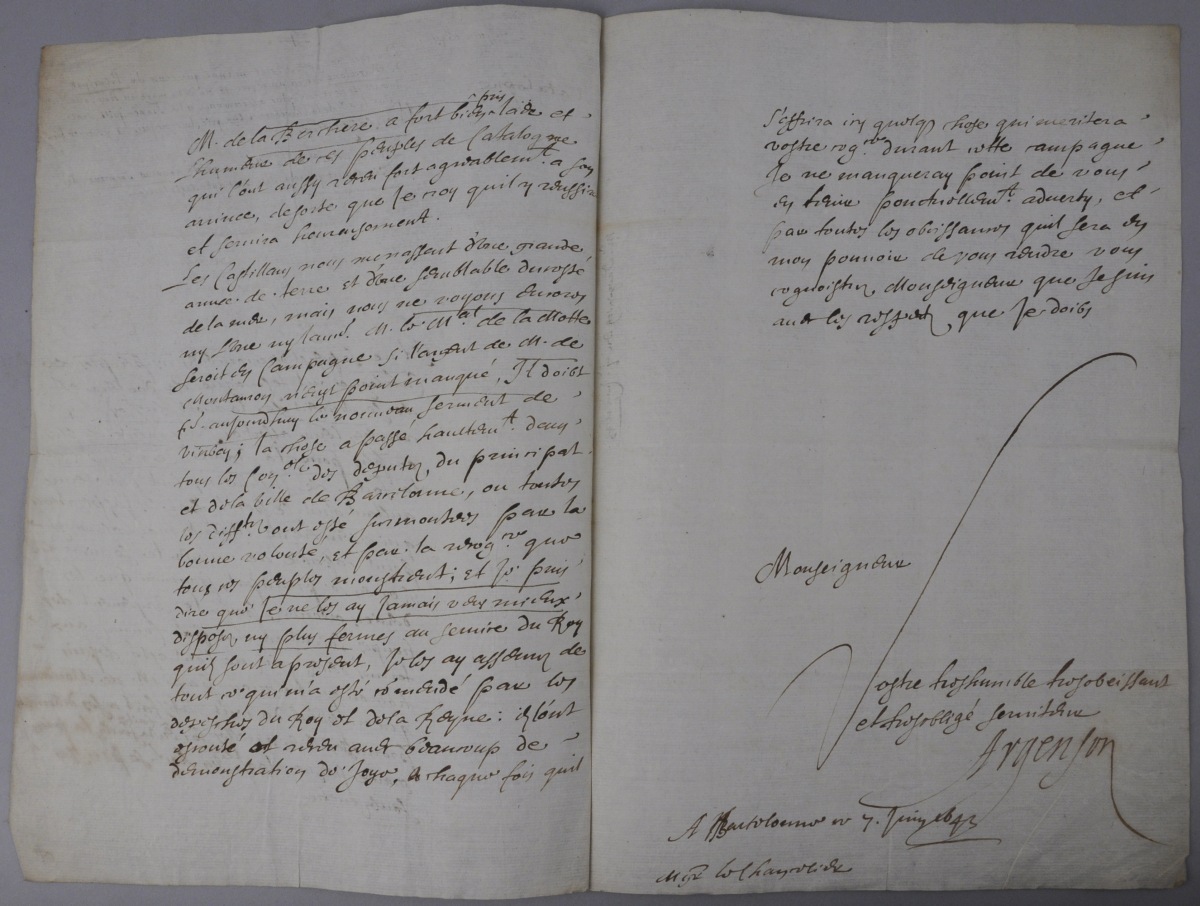 M. de la Berchere a fort bien pris l'aide et
l'humeur de ces peuples de Catalogne
qui l'ont aussy receu fort agreablemt. a son
arrivee, desorte que Je croy quil y reussira
et servira heureusement.
Les Castillans nous menassent d'une grande
armee de terre et d'une semblable du costé
de la mer, mais nous ne voyons encores
ny l'une ny l'autre. M. le Mal. de la Motte
seroit en Campagne si l'argent de M. de
Montauron n'eust point manqué, Il doibt
aujourdhuy le nouveau serment de
Viceroy; la chose a passé haultemt. dans
tous les des deputez, du principat
et de la ville de Barcelonne, ou toutes
les difftez ont esté surmontees par la
bonne volonté, et par la que
tous ces peuples monstrent; et Je puis
dire que Je ne les ay Jamais veus mieux
disposez, ny plus fermes au service du Roy
quilz sont a present, Je les ay asseurez de
tout ce qui m'a esté cõmendé par les
despesches du Roy et de la Reyne: ilz l'ont
escouté et receu avec beaucoup de
demonstration de Joye, A chaque fois quil
s'offrira icy quelq chose qui meritera
vostre cognce. durant cette campagne
Je ne manqueray point de vous
en tenir ponctuellemt. adverty, et
par toutes les obeissances quil sera en
mon pouvoir de vous rendre vous
cognoistrez, Monseigneur que Je suis
avec les respectz que Je doibs
Monseigneur
Vostre treshumble tresobeissant
et tresobligé serviteur
Argenson
A Barcelonne ce 7. Juin 1643
Mgr. le Chancelier